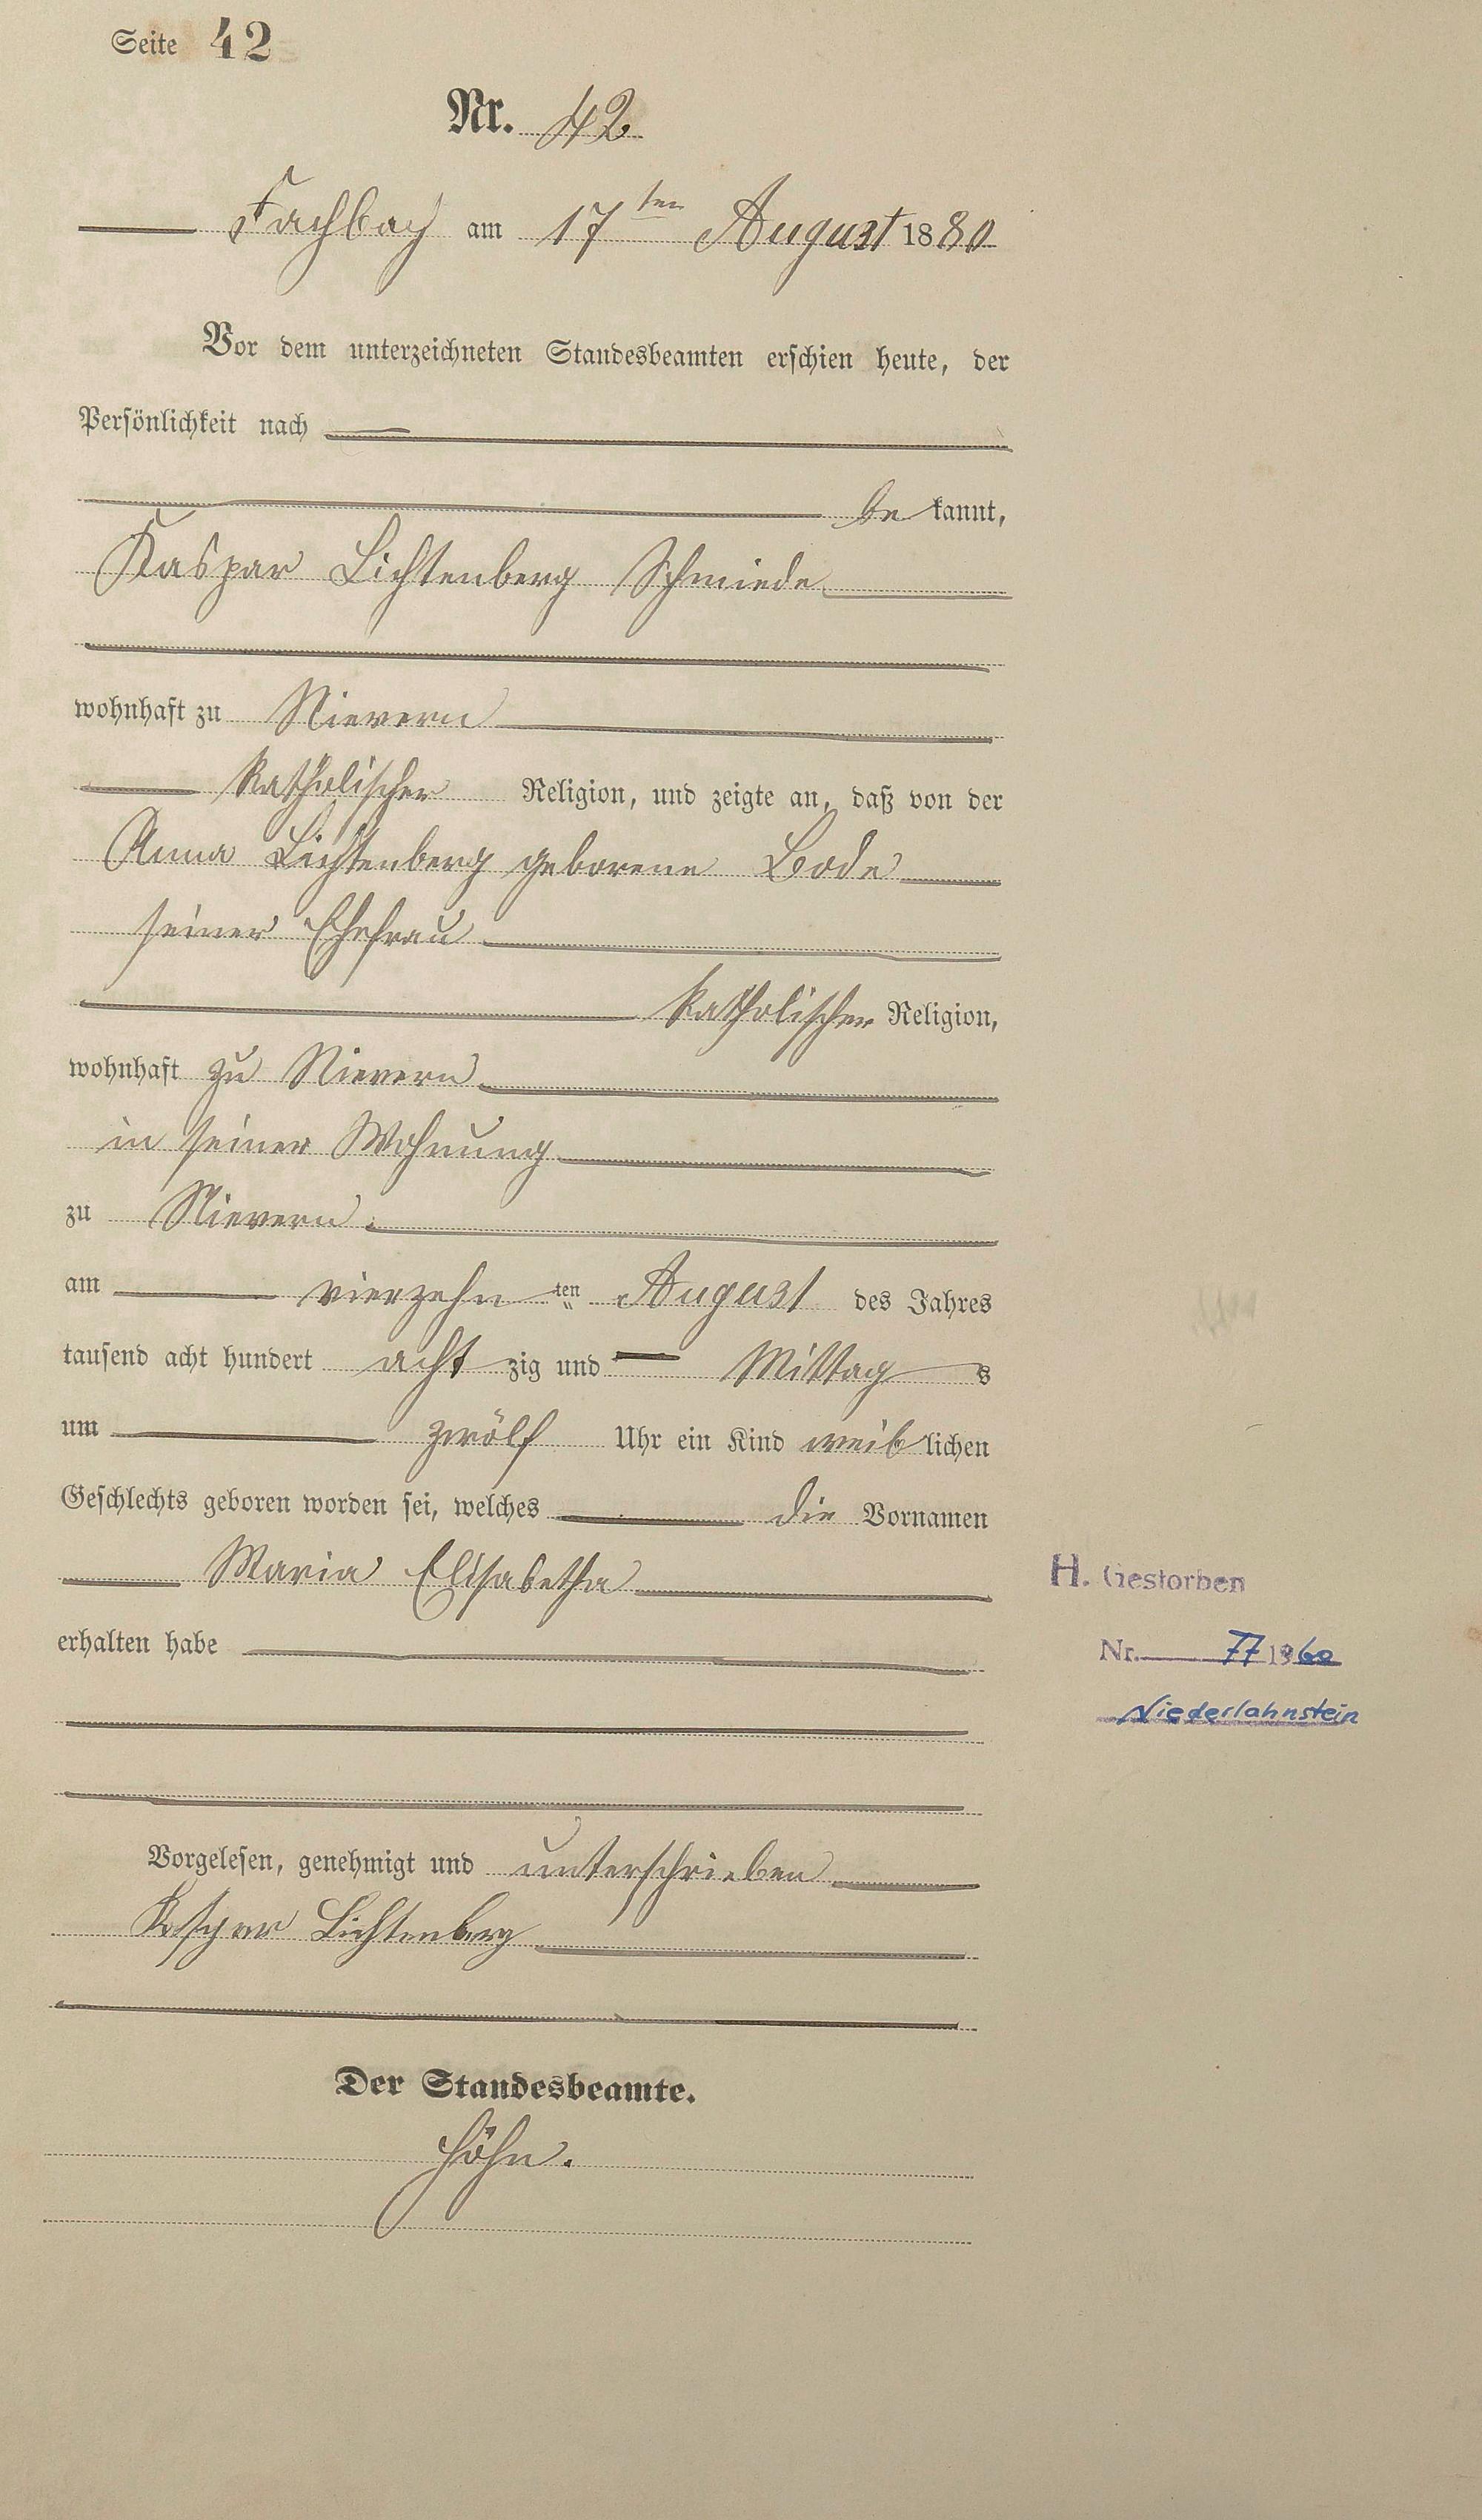 Seite 42
Nr. 42.
Fachbach am 17ten August 1880
Vor dem unterzeichneten Standesbeamten erschien heute, der
Persönlichkeit nach
be kannt,
Kaspar Lichtenberg Schmiede
wohnhaft zu Nievern
katholischer Religion, und zeigte an, daß von der
Anna Lichtenberg geborene Bode
seiner Ehefrau
katholischer Religion,
wohnhaft zu Nievern
in seiner Wohnung
zu Nievern
am vierzehn ten August des Jahres
tausend acht hundert acht zig und Mittag s
um zwölf Uhr ein Kind weib lichen
Geschlechts geboren worden sei, welches die Vornamen
Maria Elisabetha
H. Gestorben
erhalten habe
Nr. 77 1960
Niederlahnstein
Vorgelesen, genehmigt und unterschrieben
Kaspar Lichtenberg
Der Standesbeamte.
Höhn.